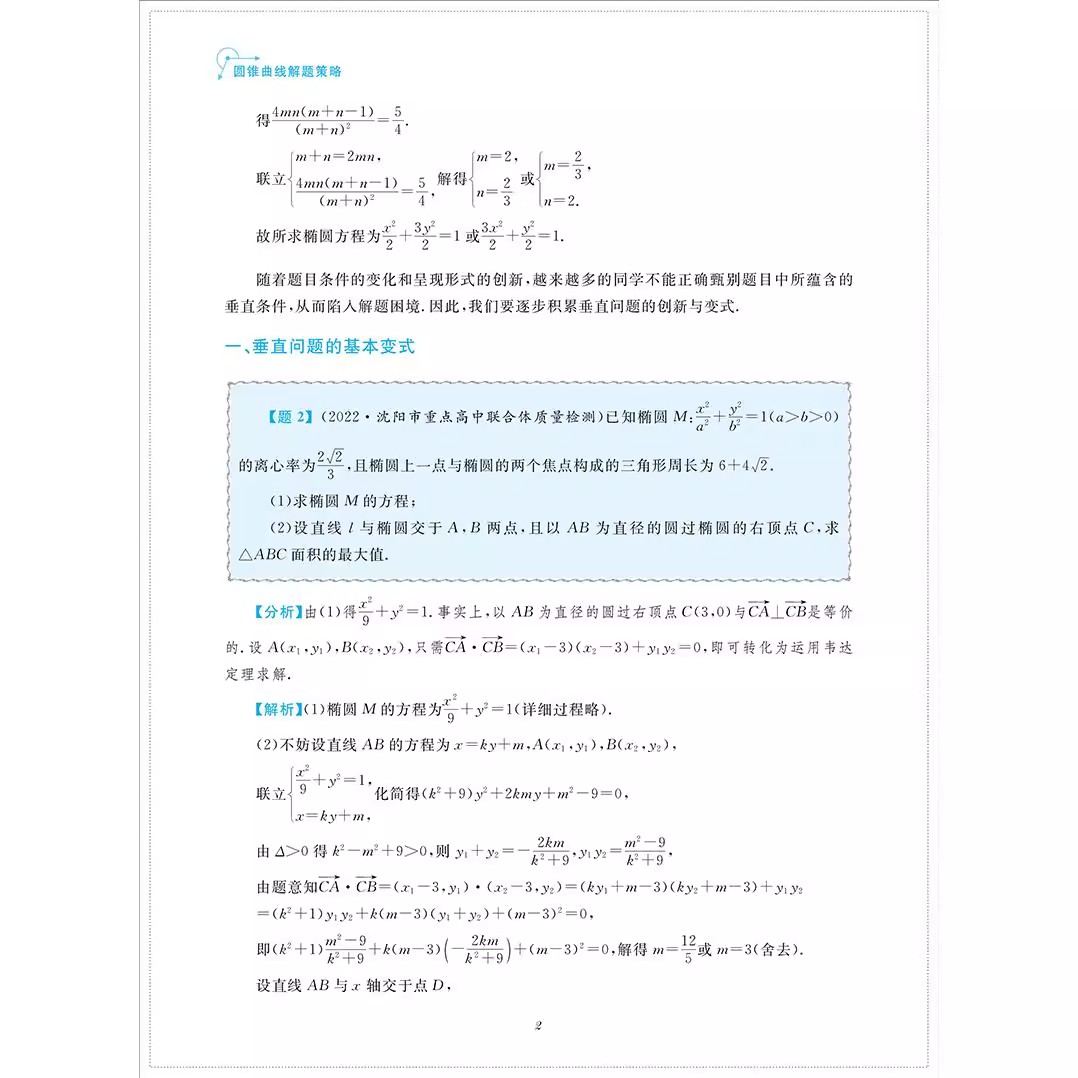 圆锥曲线解题策略
得\frac{4mn(m+n-1)}{(m+n)^2}=\frac{5}{4}.
联立\begin{cases}m+n=2mn,\\\frac{4mn(m+n-1)}{(m+n)^2}=\frac{5}{4},\end{cases}解得\begin{cases}m=2,\\n=\frac{2}{3}\end{cases}或\begin{cases}m=\frac{2}{3},\\n=2.\end{cases}
故所求椭圆方程为\frac{x^2}{2}+\frac{3y^2}{2}=1或\frac{3x^2}{2}+\frac{y^2}{2}=1.
随着题目条件的变化和呈现形式的创新,越来越多的同学不能正确甄别题目中所蕴含的
垂直条件,从而陷入解题困境.因此,我们要逐步积累垂直问题的创新与变式.
一、垂直问题的基本变式
【题2】(2022·沈阳市重点高中联合体质量检测)已知椭圆M:\frac{x^2}{a^2}+\frac{y^2}{b^2}=1(a>b>0)
的离心率为\frac{2\sqrt{2}}{3},且椭圆上一点与椭圆的两个焦点构成的三角形周长为6+4\sqrt{2}.
(1)求椭圆M的方程;
(2)设直线l与椭圆交于A,B两点,且以AB为直径的圆过椭圆的右顶点C,求
△ABC面积的最大值.
【分析】由(1)得\frac{x^2}{9}+y^2=1.事实上,以AB为直径的圆过右顶点C(3,0)与\overrightarrow{CA}⊥\overrightarrow{CB}是等价
的.设A(x_1,y_1),B(x_2,y_2),只需\overrightarrow{CA}·\overrightarrow{CB}=(x_1-3)(x_2-3)+y_1y_2=0,即可转化为运用韦达
定理求解.
【解析】(1)椭圆M的方程为\frac{x^2}{9}+y^2=1(详细过程略).
(2)不妨设直线AB的方程为x=ky+m,A(x_1,y_1),B(x_2,y_2),
联立\begin{cases}\frac{x^2}{9}+y^2=1,\\x=ky+m,\end{cases}化简得(k^2+9)y^2+2kmy+m^2-9=0,
由Δ>0得k^2-m^2+9>0,则y_1+y_2=-\frac{2km}{k^2+9},y_1y_2=\frac{m^2-9}{k^2+9},
由题意知\overrightarrow{CA}·\overrightarrow{CB}=(x_1-3,y_1)·(x_2-3,y_2)=(ky_1+m-3)(ky_2+m-3)+y_1y_2
=(k^2+1)y_1y_2+k(m-3)(y_1+y_2)+(m-3)^2=0,
即(k^2+1)\frac{m^2-9}{k^2+9}+k(m-3)\left(-\frac{2km}{k^2+9}\right)+(m-3)^2=0,解得m=\frac{12}{5}或m=3(舍去).
设直线AB与x轴交于点D,
2